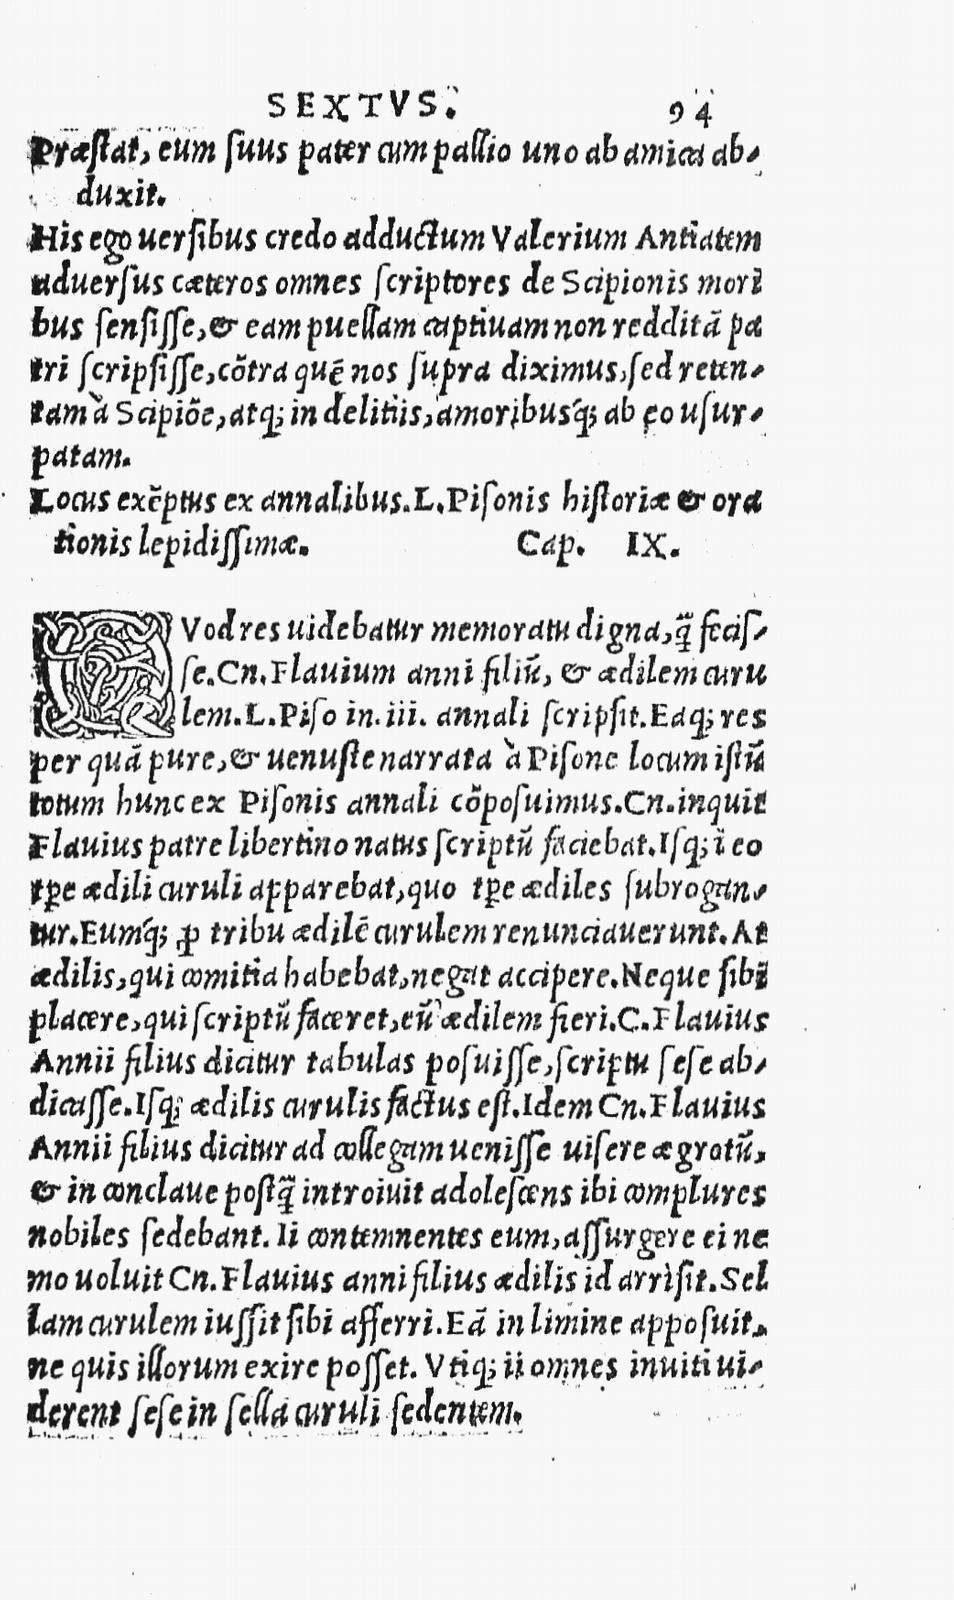 SEXTVS. 94
Præstat, eum suus pater cum pallio uno ab amica ab-
duxit.
His ego uersibus credo adductum Valerium Antiatem
aduersus cæteros omnes scriptores de Scipionis mori
bus sensisse, & eam puellam captiuam non redditã pa
tri scripsisse, cõtra quẽ nos supra diximus, sed reten-
tam à Scipiõe, atq; in delitiis, amoribusq́; ab eo usur-
patam.
Locus exẽptus ex annalibus. L. Pisonis historiæ & ora
tionis lepidissimæ. Cap. IX.
QVod res uidebatur memoratu digna, q̃ fecis-
se. Cn. Flauium anni filiũ, & ædilem curu
lem. L. Piso in. iii. annali scripsit. Eaq; res
per quã pure, & uenuste narrata à Pisone locum istũ
totum hunc ex Pisonis annali cõposuimus. Cn. inquit
Flauius patre libertino natus scriptũ faciebat. Isq; ĩ eo
tp̃e ædili curuli apparebat, quo tp̃e ædiles subrogan-
tur. Eumq́; ꝓ tribu ædilẽ curulem renunciauerunt. At
ædilis, qui comitia habebat, negat accipere. Neque sibi
placere, qui scriptũ faceret, eũ ædilem fieri. C. Flauius
Annii filius dicitur tabulas posuisse, scriptu sese ab-
dicasse. Isq; ædilis curulis factus est. Idem Cn. Flauius
Annii filius dicitur ad collegam uenisse uisere ægrotũ,
& in conclaue postq̃ introiuit adolescens ibi complures
nobiles sedebant. Ii contemnentes eum, assurgere ei ne
mo uoluit Cn. Flauius anni filius ædilis id arrisit. Sel
lam curulem iussit sibi afferri. Eã in limine apposuit,
ne quis illorum exire posset. Vtiq; ii omnes inuiti ui-
derent sese in sella curuli sedentem.